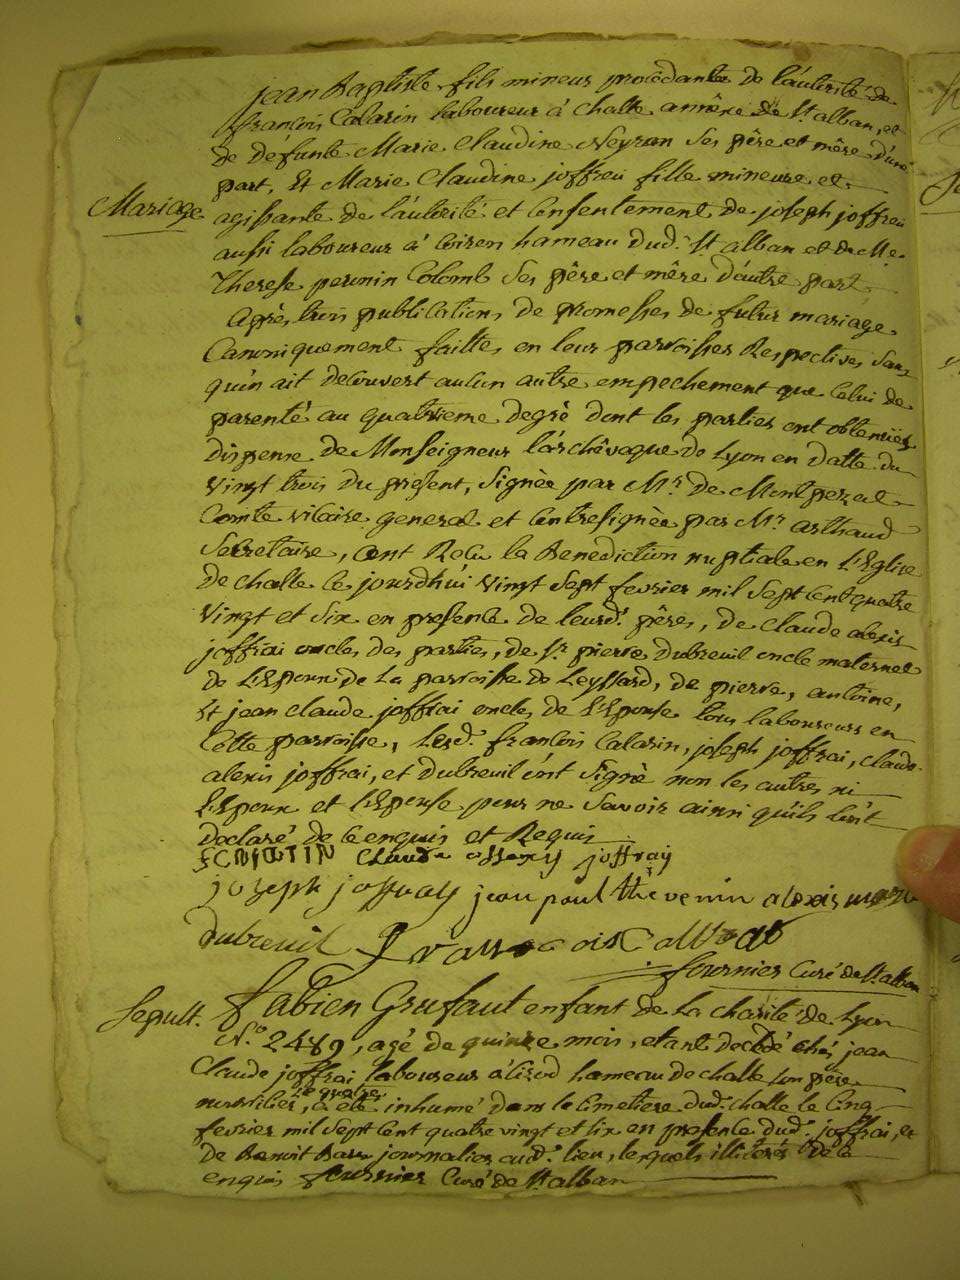 jean Baptiste fils mineur procedante de l'autorité de
françois Calarin laboureur à Chalte annéxe de St alban, et
de défunte Marie Claudine Neyran ses père et mère d'une
part, Et Marie Claudine joffrei fille mineure et
Mariage
agissante de l'autorité et Consentement de joseph joffrei
aussi laboureur à hameau dud. St alban et de Me
Therese Colomb ses père et mère d'autre part
Après trois publications de promesses de futur mariage
Canoniquement faittes en leur paroisses Respectives sans
qu'in ait découvert aucun autre empechement que celui de
parenté au quatrieme degré dont les parties ont obtenües
dispense de Monseigneur l'archêveque de Lyon en datte du
Vingt trois du présent, signée par Mr. de Montpezat
Comte vicaire general et Contresignée par Mr arthaud
Secretaire, ont Recu la Benediction nuptiale en l'Eglise
de Chalte ce jourdhüi vingt sept fevrier mil sept cent quatre
vingt et six en presence de leursd. pères, de Claude alexis
joffrai oncles des parties, de Sr pierre dubreuil oncle maternel
de L'Epoux de la paroisse de Leyssard, de pierre, antoine,
Et jean Claude joffrai oncles de l'Epouse tous laboureurs en
Cette paroisse, Lesd. françois Calarin, joseph joffrai, Claude
alexis joffrai, et dubreuil ont signé non les autres ni
l'Epoux et l'Epouse pour ne savoir ainsi qu'ils l'ont
declaré de ce enquis et Requis
Claude joffray
joseph joffray jean paul thevenin alexis
dubreuil
fournier Curé de St alban
Sepult. Fabien Grufaut enfant de la Charité de Lyon
No. 2489, agé de quinze mois, etant decédé chés jean
Claude joffrai laboureur à hameau de Chalte son père
nourricier, à eté inhumé dans le Cimetiere dud. Chalte le Cinq
fevrier mil sept Cent quatre vingt et six en presence dud. joffrai, et
de Benoit journalier aud. lieu, lequels illiterés de ce
enquis fournier Curé de St alban